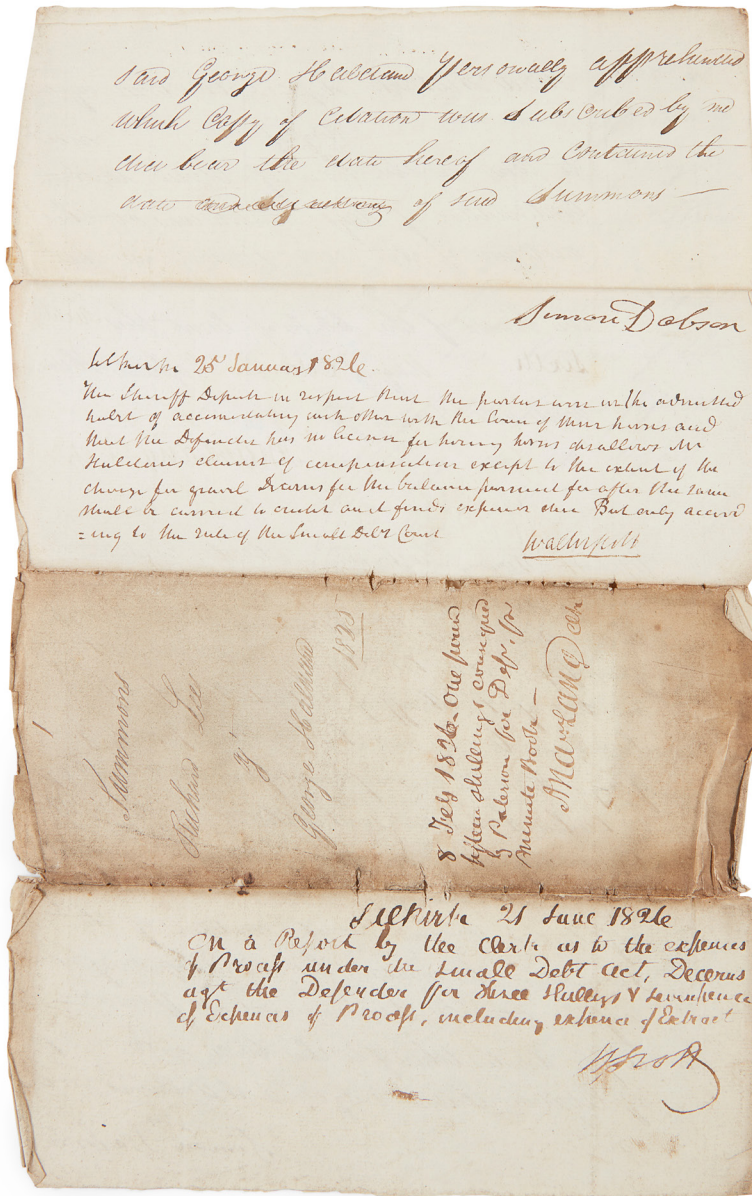 said George Haldane personally apprehended
which Copy of Citation was Subscribed by me
did bear the date hereof and contained the
date of said Summons —
Simon Dobson
Selkirk 25 January 1826.
The Sheriff Depute in respect that the parties were in the admitted
habit of accomodating each other with the Loan of their horses and
that the Defender has no licence for hiring horses disallows Mr
Haldanes claim of compensation except to the extent of the
charge for gravel Decerns for the balance pursued for after the same
shall be carried to credit and finds expences due But only accord
=ing to the rule of the Small Debt Court
Walter Scott
Summons
Richard Lee
George Haldane
1825
8 Feby 1826. One pound
fifteen shillings consigned
by Paterson for Defr. pr
Minute Book —
Selkirk 21 June 1826
On a Report by the Clerk as to the expences
of Process under the Small Debt Act, Decerns
agt the Defender for three Shillings & sevenpence
of Expences of Process, including expence of Extract
W Scott